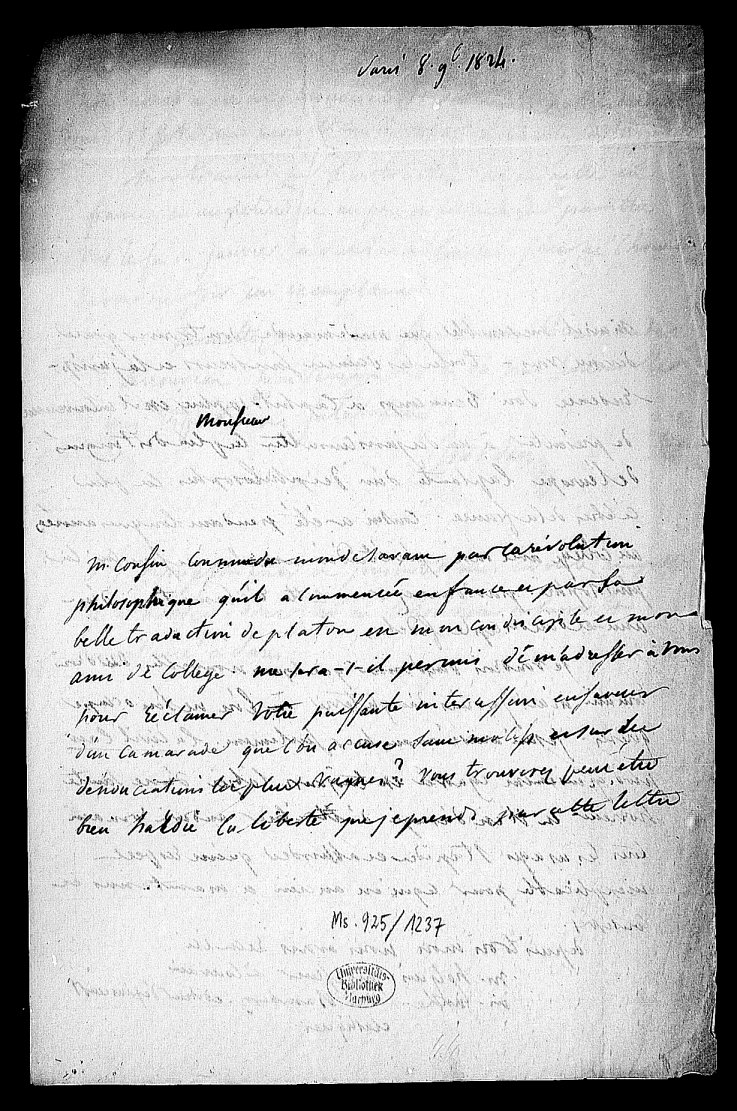 Paris 8. 9b. 1824.
Monsieur
M. Cousin connu du monde savant par la révolution
philosophique qu'il a commencée en france et par sa
belle traduction de platon est mon condisciple et mon
ami de College. me sera-t-il permis de m'adresser à vous
pour réclamer votre puissante intercession en faveur
d'un camarade que l'on accuse sans motifs et sur des
denonciations les plus vagues? vous trouverez peut être
bien hardie la liberté que je prends par cette lettre
Ms. 925/1237
Universitäts-
Bibliothek
Marburg